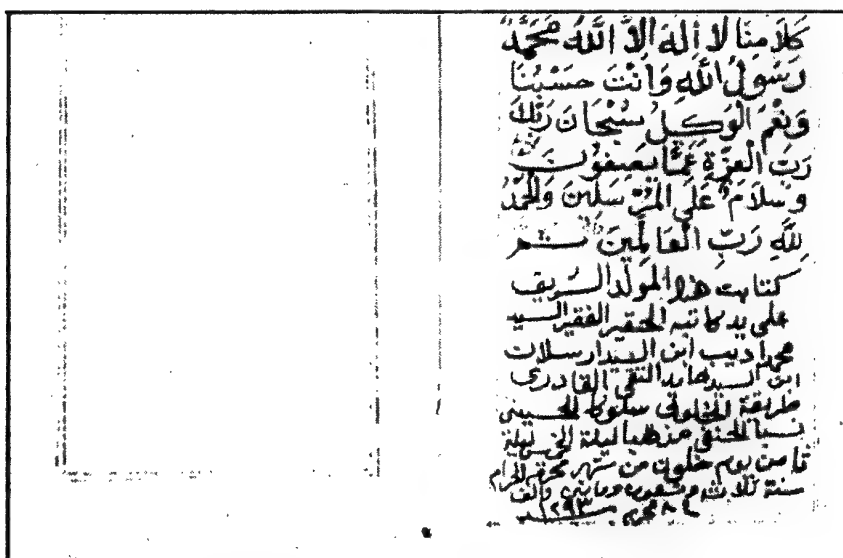 كَلَامِنَا لَا إِلَهَ إِلَّا اللَّهُ مُحَمَّدٌ
رَسُولُ اللَّهِ وَأَنْتَ حَسْبُنَا
وَنِعْمَ الْوَكِيلُ سُبْحَانَ رَبِّكَ
رَبِّ الْعِزَّةِ عَمَّا يَصِفُونَ
وَسَلَامٌ عَلَى الْمُرْسَلِينَ وَالْحَمْدُ
لِلَّهِ رَبِّ الْعَالَمِينَ
كتابت هذا المولد الشريف
على يد كاتبه الحقير الفقير السيد
محمد اديب ابن السيد ارسلان
ابن السيد حامد التقي القادري
طريقة الخلوتي سلوكا الحسيني
نسبا الحنفي مذهبا ليلة الخميس ليلة
ثامن يوم خلون من شهر محرم الحرام
سنة ثلاثه وتسعون ومايتين والف
٨ محرم ١٢٩٣